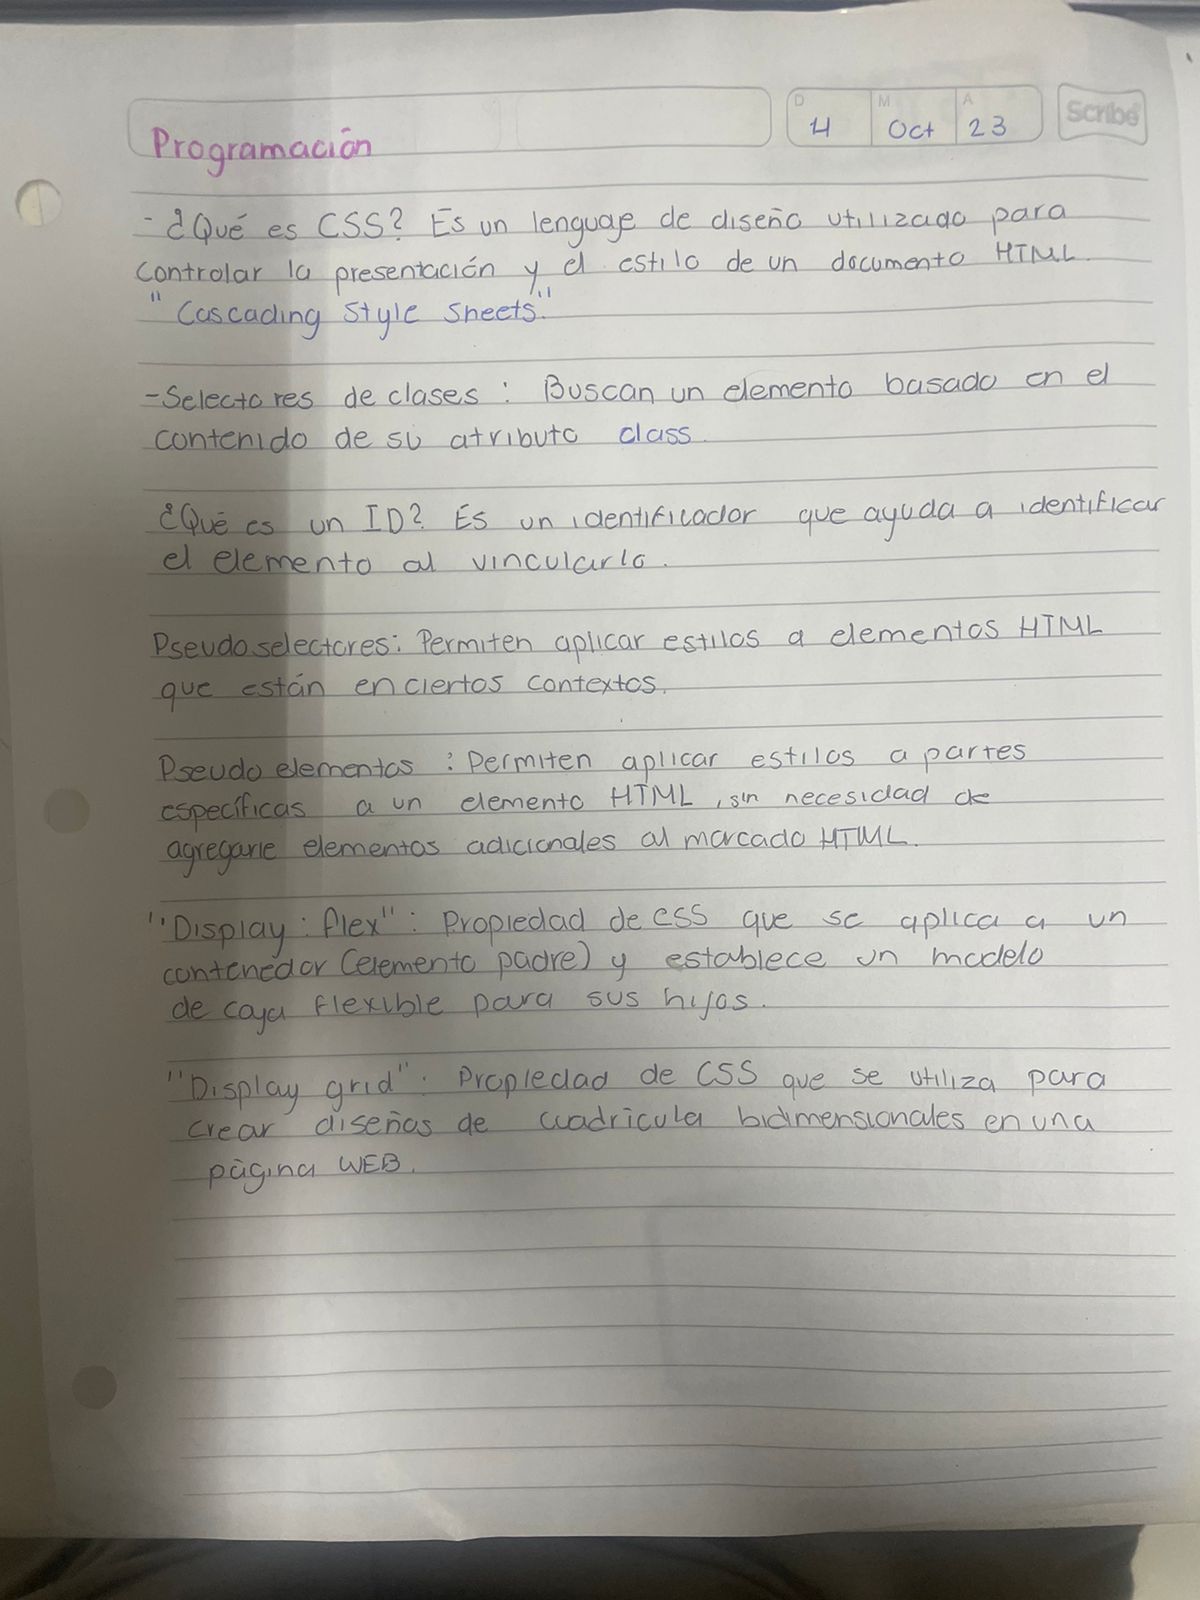 D M A
4 Oct 23
Scribe
Programación
- ¿Qué es CSS? Es un lenguaje de diseño utilizado para
controlar la presentación y el estilo de un documento HTML.
"Cascading Style Sheets."
- Selectores de clases : Buscan un elemento basado en el
contenido de su atributo class.
¿Qué es un ID? Es un identificador que ayuda a identificar
el elemento al vincularlo.
Pseudo selectores: Permiten aplicar estilos a elementos HTML
que están en ciertos contextos.
Pseudo elementos : Permiten aplicar estilos a partes
específicas a un elemento HTML, sin necesidad de
agregarle elementos adicionales al marcado HTML.
"Display : flex" : Propiedad de CSS que se aplica a un
contenedor (elemento padre) y establece un modelo
de caja flexible para sus hijos.
"Display grid". Propiedad de CSS que se utiliza para
crear diseños de cuadrícula bidimensionales en una
página WEB.